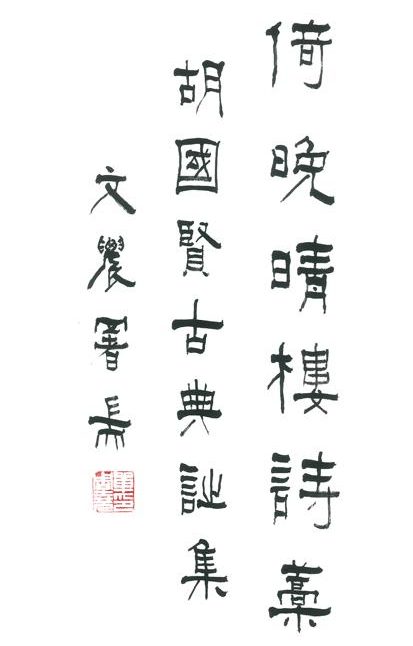 倚晚晴樓詩藁
胡國賢古典詩集
文農署耑